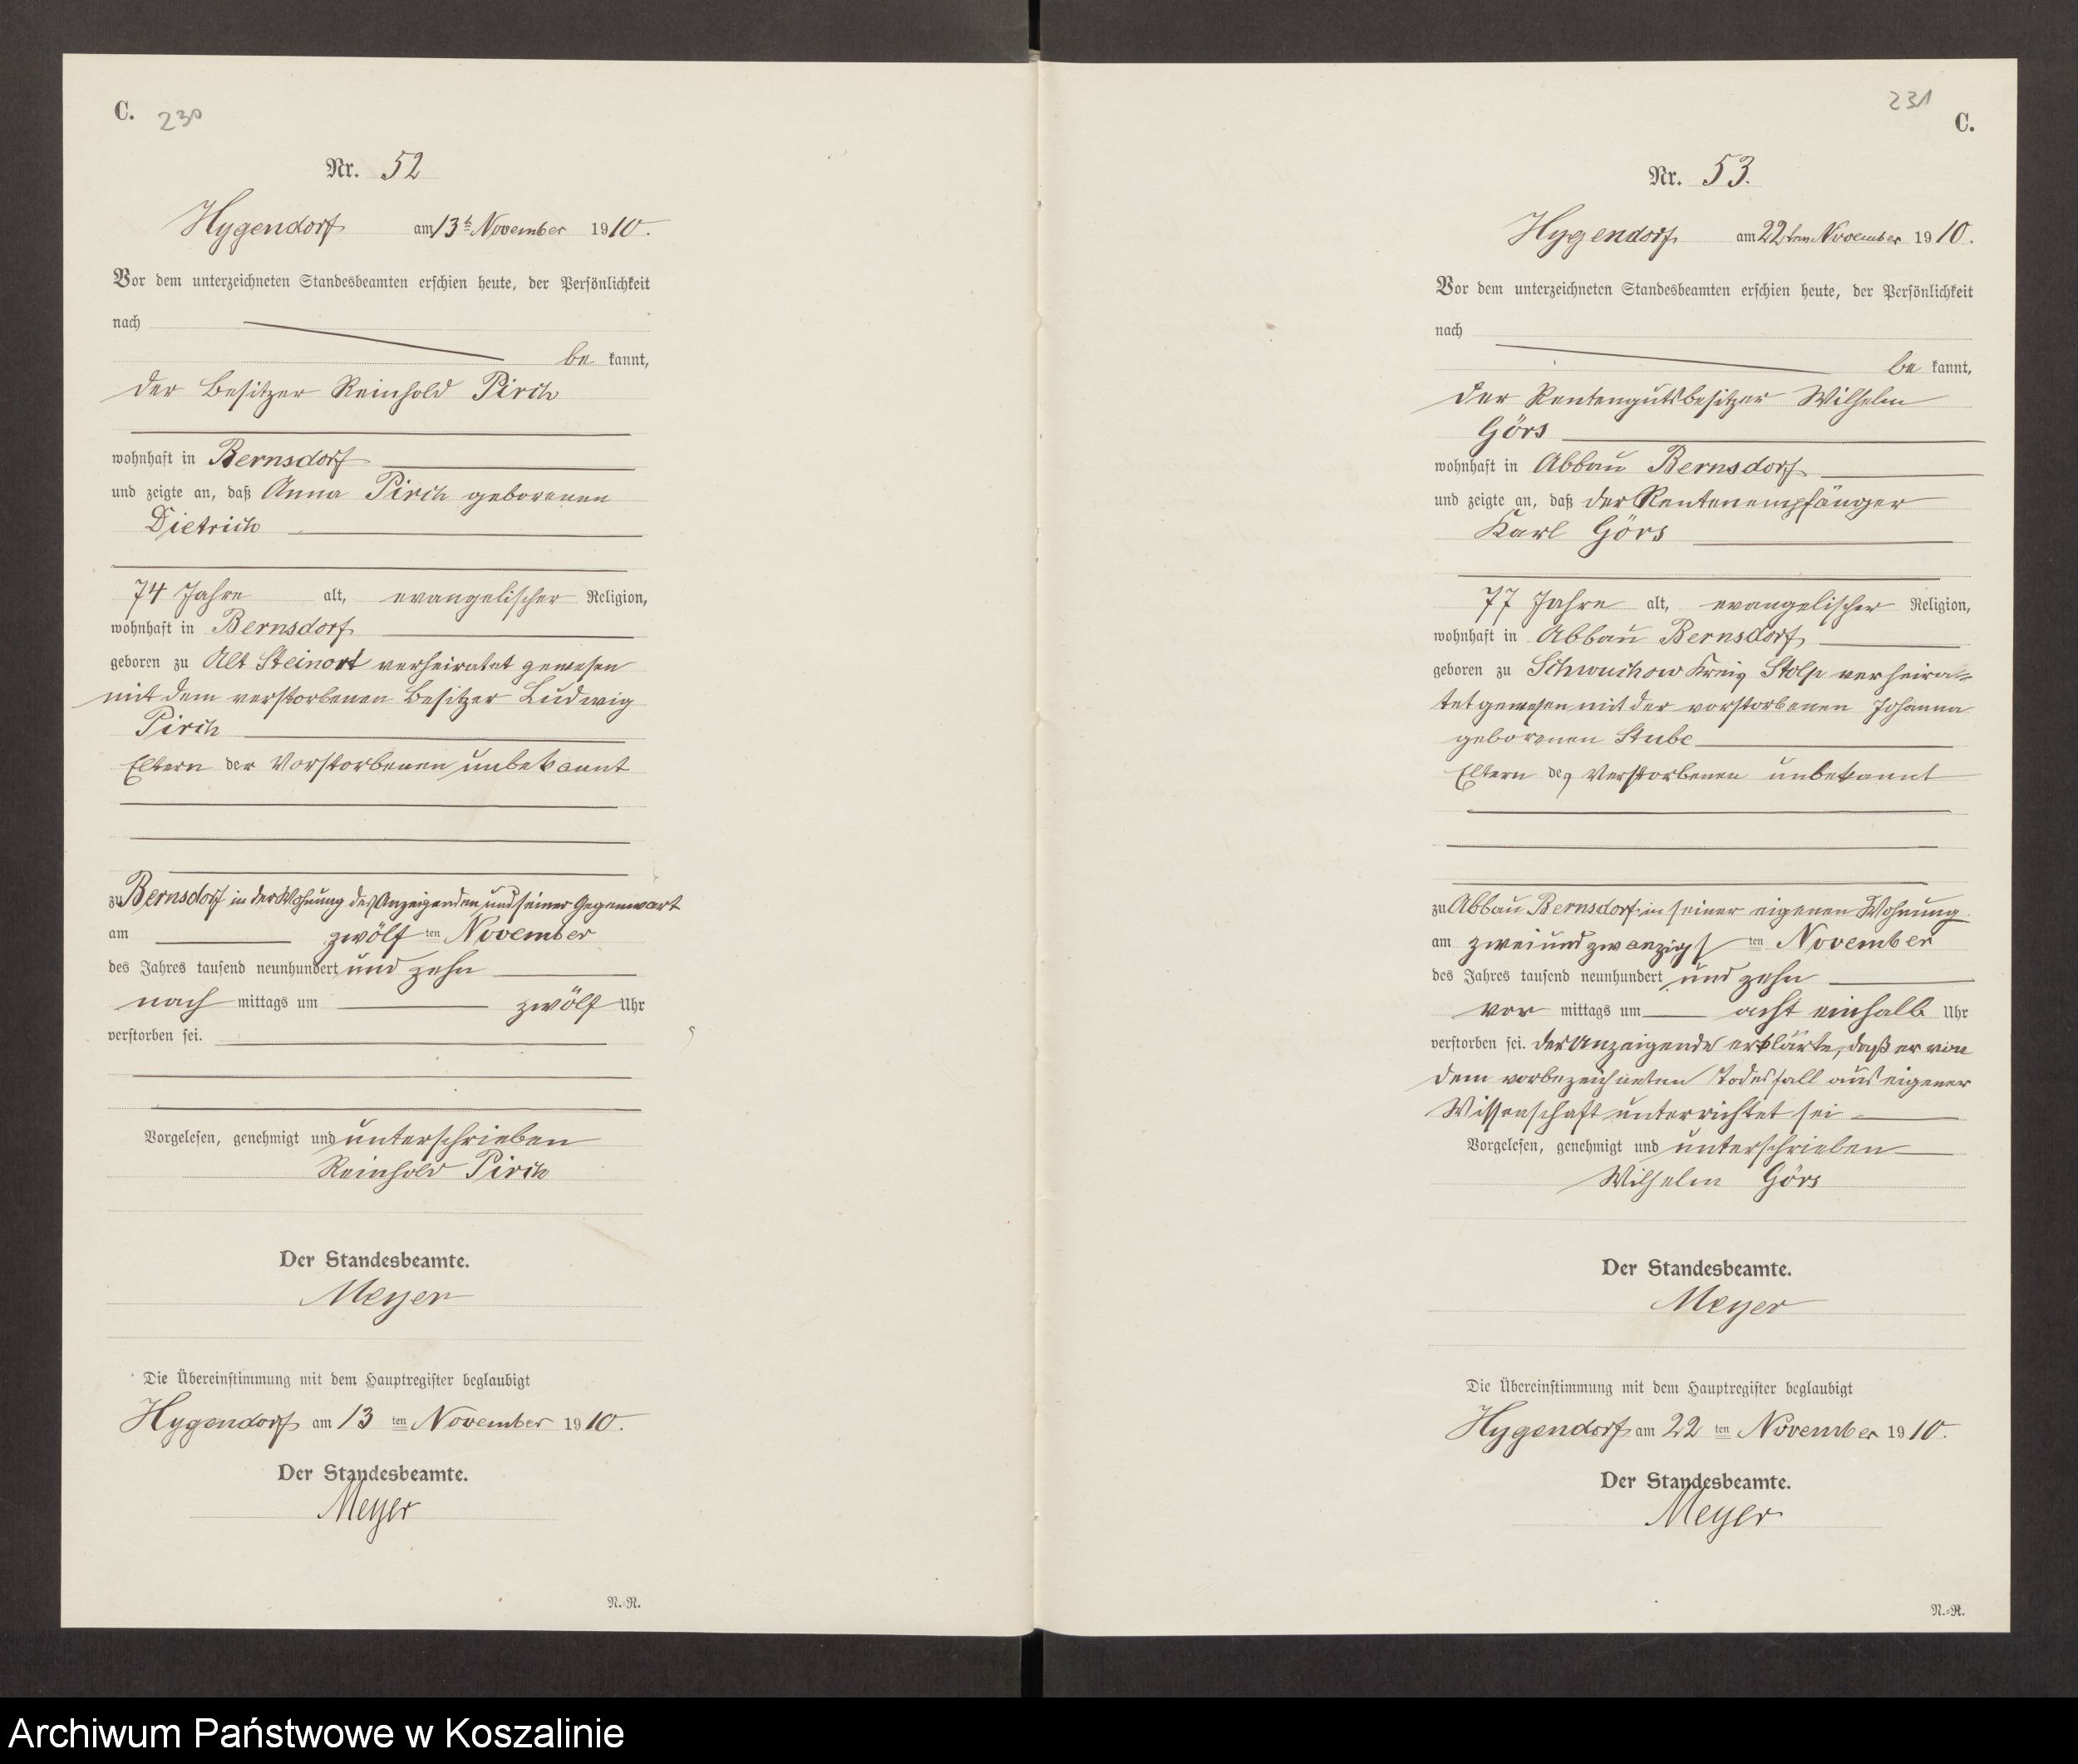 C. 230
Nr. 52
Hygendorf am 13t November 1910.
Vor dem unterzeichneten Standesbeamten erschien heute, der Persönlichkeit
nach
be kannt,
der Besitzer Reinhold Pirch
wohnhaft in Bernsdorf
und zeigte an, daß Anna Pirch geborenen
Dietrich
74 Jahre alt, evangelischer Religion,
wohnhaft in Bernsdorf
geboren zu Alt Steinort verheiratet gewesen
mit dem verstorbenen Besitzer Ludwig
Pirch
Eltern der Verstorbenen unbekannt
zu Bernsdorf in der Wohnung des Anzeigenden und seiner Gegenwart
am zwölf ten November
des Jahres tausend neunhundert und zehn
nach mittags um zwölf Uhr
verstorben sei.
Vorgelesen, genehmigt und unterschrieben
Reinhold Pirch
Der Standesbeamte.
Meyer
Die Übereinstimmung mit dem Hauptregister beglaubigt
Hygendorf am 13 ten November 1910.
Der Standesbeamte.
Meyer
N.-R.
231
C.
Nr. 53.
Hygendorf am 22ten November 1910.
Vor dem unterzeichneten Standesbeamten erschien heute, der Persönlichkeit
nach
be kannt,
der Rentengutsbesitzer Wilhelm
Görs
wohnhaft in Abbau Bernsdorf
und zeigte an, daß der Rentenempfänger
Karl Görs
77 Jahre alt, evangelischer Religion,
wohnhaft in Abbau Bernsdorf
geboren zu Schwuchow Kreis Stolp verheira=
tet gewesen mit der verstorbenen Johanna
geborenen Stube
Eltern des Verstorbenen unbekannt
zu Abbau Bernsdorf in seiner eigenen Wohnung
am zweiundzwanzigs ten November
des Jahres tausend neunhundert und zehn
vor mittags um acht einhalb Uhr
verstorben sei. Der Anzeigende erklärte, daß er von
dem vorbezeichneten Todesfall aus eigener
Wissenschaft unterrichtet sei
Vorgelesen, genehmigt und unterschrieben
Wilhelm Görs
Der Standesbeamte.
Meyer
Die Übereinstimmung mit dem Hauptregister beglaubigt
Hygendorf am 22 ten November 1910.
Der Standesbeamte.
Meyer
N.-R.
Archiwum Państwowe w Koszalinie